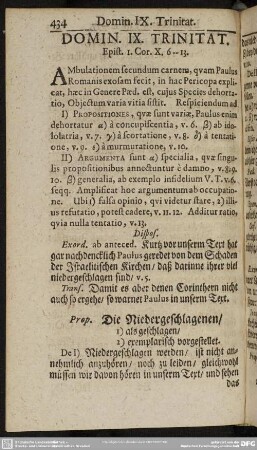 434 Domin. IX. Trinitat.
DOMIN. IX. TRINITAT.
Epist. 1. Cor. X, 6--13.
AMbulationem secundum carnem, qvam Paulus
Romanis exosam fecit, in hac Pericopa expli-
cat, hæc in Genere Pæd. est, cujus Species dehorta-
tio, Objectum varia vitia sistit. Respiciendum ad
I) PROPOSITIONES, qvæ sunt variæ, Paulus enim
dehortatur α) à concupiscentia, v. 6. β) ab ido-
lolatria, v. 7. γ) à scortatione, v. 8. δ) à tentatio-
ne, v. 9. ε) à murmuratione, v. 10.
II) ARGUMENTA sunt α) specialia, qvæ singu-
lis propositionibus annectuntur à damno, v. 8.9.
10. β) generalia, ab exemplo infidelium V. T. v.6.
seqq. Amplificat hoc argumentum ab occupatio-
ne. Ubi 1) falsa opinio, qvi videtur stare, 2) il-
lius refutatio, potest cadere, v. 11. 12. Additur ratio,
qvia nulla tentatio, v. 13.
Dispos.
Exord. ab anteced. Kurtz vor unserm Text hat
gar nachdencklich Paulus geredet von dem Schaden
der Israelitischen Kirchen/ daß darinne ihrer viel
niedergeschlagen sind/ v. 5.
Trans. Damit es aber denen Corinthern nicht
auch so ergehe/ so warnet Paulus in unserm Text.
Prop. Die Niedergeschlagenen/
1) als geschlagen/
2) exemplarisch vorgestellet.
De I) Niedergeschlagen werden/ ist nicht an-
nehmlich anzuhören/ noch zu leiden/ gleichwohl
müssen wir davon hören in unserm Text/ und sehen
das